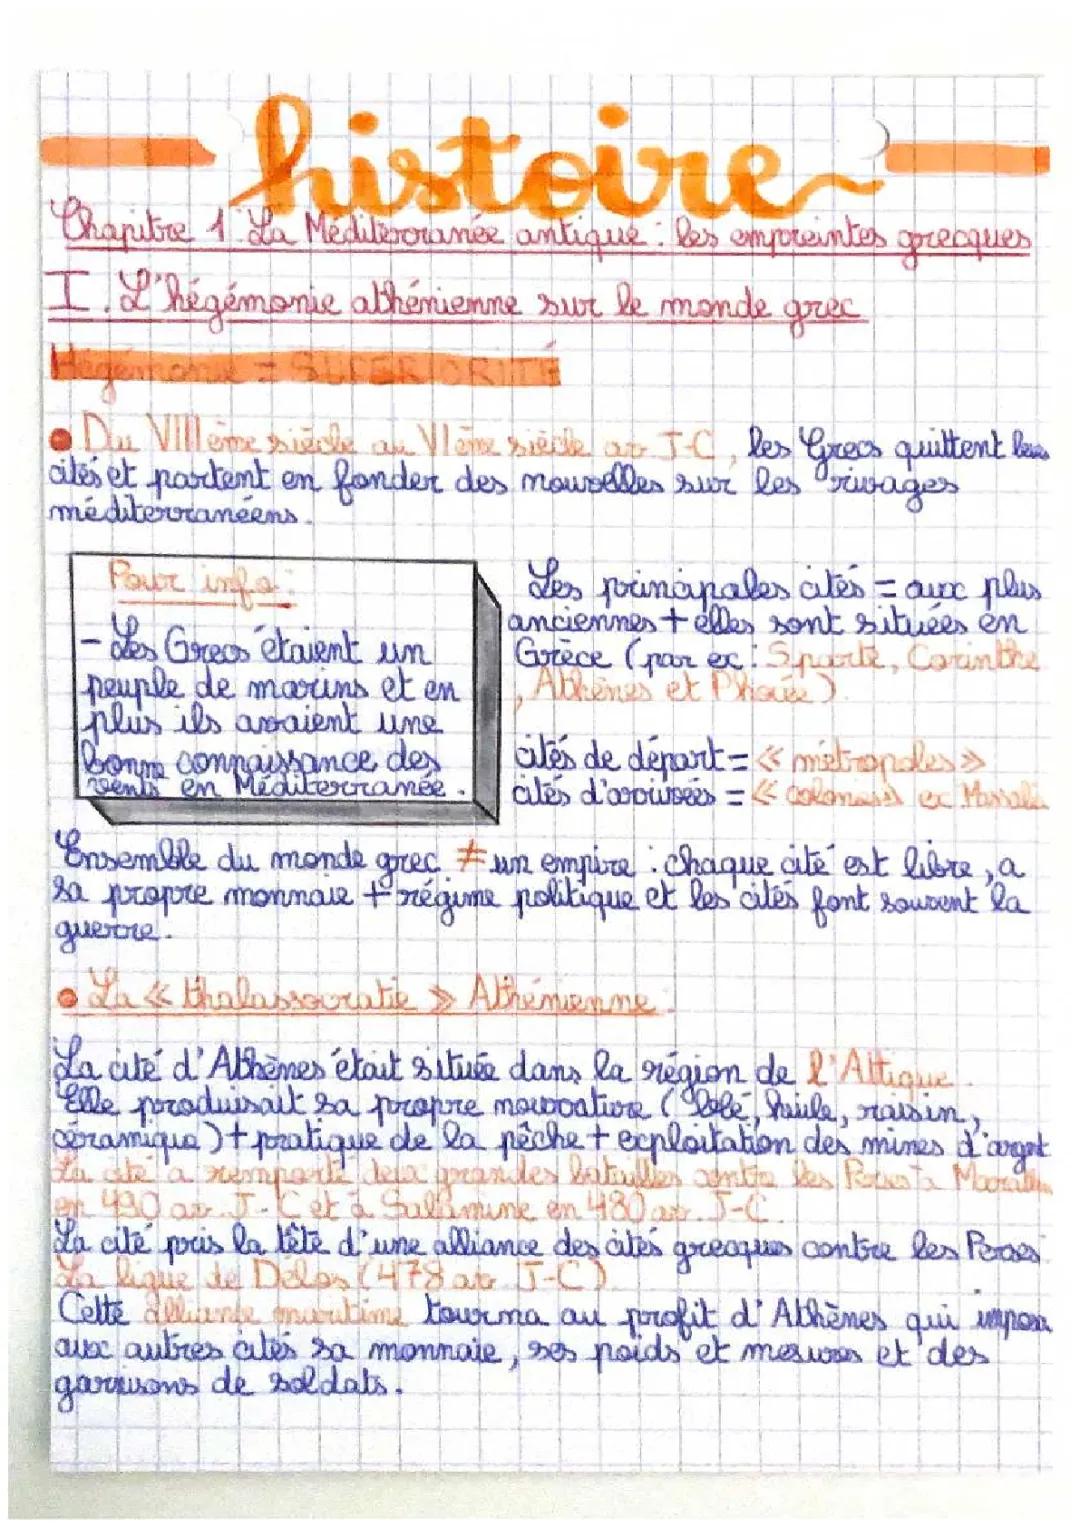 histoire
Chapitre 1: La Méditerranée antique : les empreintes grecques
I. L'hégémonie athénienne sur le monde grec
Hégémonie = SUPERIORITÉ
• Du VIIIème siècle au VIème siècle av J-C, les Grecs quittent leurs
cités et partent en fonder des nouvelles sur les rivages
méditerranéens.
Pour info:
- Les Grecs étaient un
peuple de marins et en
plus ils avaient une
bonne connaissance des
vents en Méditerranée.
Les principales cités = aux plus
anciennes + elles sont situées en
Grèce (par ex: Sparte, Corinthe
, Athènes et Phocée).
cités de départ = « métropoles »
cités d'arrivées = « colonies » ex Massalia
Ensemble du monde grec ≠ un empire : chaque cité est libre, a
sa propre monnaie + régime politique et les cités font souvent la
guerre.
• La « thalassocratie » Athénienne:
La cité d'Athènes était située dans la région de l'Attique.
Elle produisait sa propre nourriture (blé, huile, raisin,
céramique) + pratique de la pêche + exploitation des mines d'argent
La cité a remporté deux grandes batailles contre les Perses à Marathon
en 490 av. J-C et à Salamine en 480 av. J-C.
La cité pris la tête d'une alliance des cités grecques contre les Perses:
La ligue de Délos (478 av J-C).
Cette alliance maritime tourna au profit d'Athènes qui imposa
aux autres cités sa monnaie, ses poids et mesures et des
garnisons de soldats.